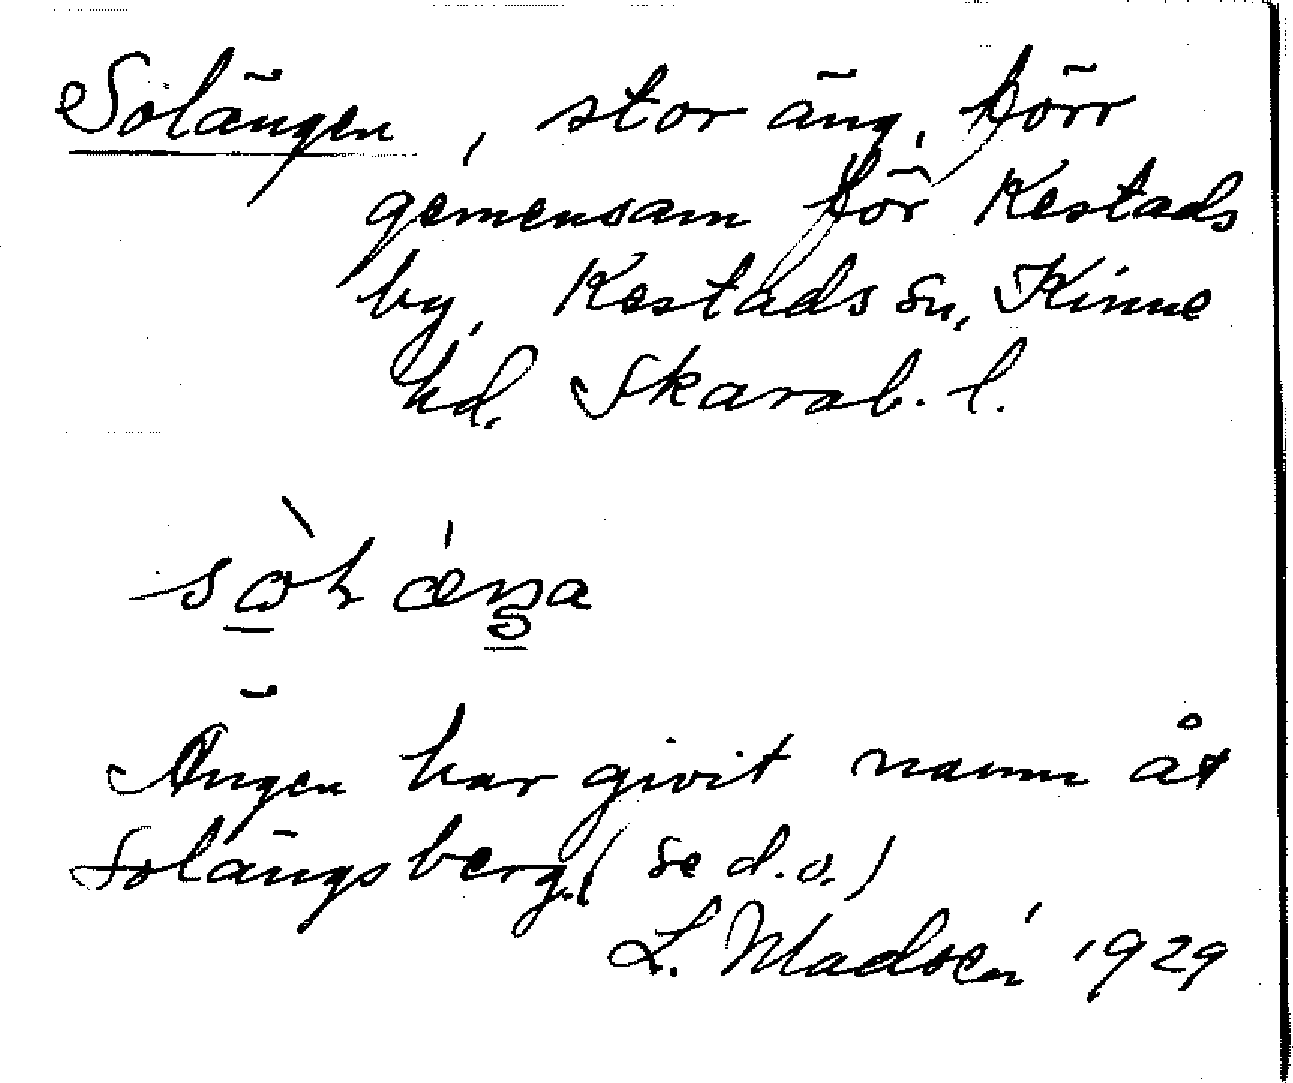 Solängen, stor äng, förr
gemensam för Kestads
by, Kestads sn, Kinne
hd. Skarab. l.
Ängen har givit namn åt
Solängsberg. (se d.o.)
L. Madsén 1929